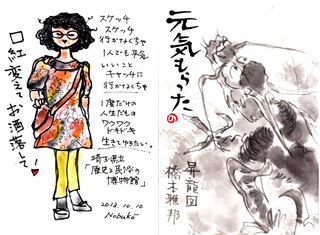 口紅変えてお洒落して!
スケッチ
スケッチ
行かなくちゃ
1人でも平気
いいこと
キャッチに
行かなくちゃ
1度だけの
人生だもの
ワクワク
ドキドキ
生きてゆきたい。
埼玉県立
「歴史と民俗の
博物館」
2013.10.10
Nobuko
元気もらった
の
昇龍図
橋本雅邦